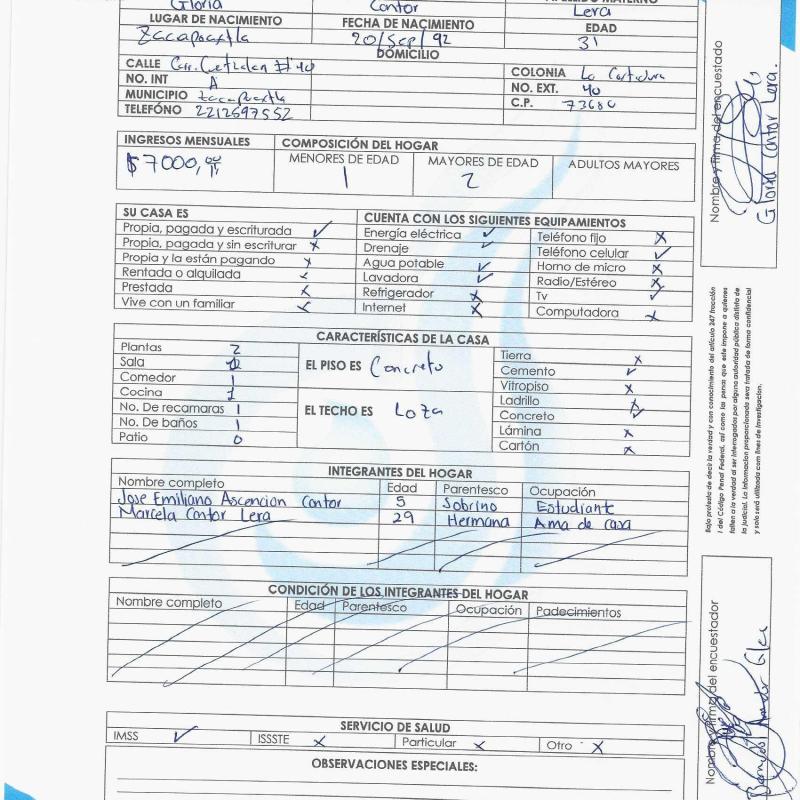 Gloria Contor Lera
LUGAR DE NACIMIENTO FECHA DE NACIMIENTO EDAD
Zacapoaxtla 20/Sep/92 31
DOMICILIO
CALLE Carr. Cuetzalan #40
COLONIA La Cortadura
NO. INT A
NO. EXT. 40
MUNICIPIO Zacapoaxtla
C.P. 73680
TELEFÓNO 2212697552
INGRESOS MENSUALES COMPOSICIÓN DEL HOGAR
$7000,00 MENORES DE EDAD MAYORES DE EDAD ADULTOS MAYORES
1 2
SU CASA ES CUENTA CON LOS SIGUIENTES EQUIPAMIENTOS
Propia, pagada y escriturada ✓ Energía eléctrica ✓ Teléfono fijo x
Propia, pagada y sin escriturar x Drenaje ✓ Teléfono celular ✓
Propia y la están pagando x Agua potable ✓ Horno de micro x
Rentada o alquilada x Lavadora ✓ Radio/Estéreo x
Prestada x Refrigerador x Tv ✓
Vive con un familiar x Internet x Computadora x
CARACTERÍSTICAS DE LA CASA
Plantas 2
Sala
Comedor 1
Cocina 1
No. De recamaras 1
No. De baños 1
Patio 0
EL PISO ES Concreto
EL TECHO ES Loza
Tierra x
Cemento ✓
Vitropiso x
Ladrillo x
Concreto ✓
Lámina x
Cartón x
INTEGRANTES DEL HOGAR
Nombre completo Edad Parentesco Ocupación
Jose Emiliano Ascencion Contor 5 Sobrino Estudiante
Marcela Contor Lera 29 Hermana Ama de casa
CONDICIÓN DE LOS INTEGRANTES DEL HOGAR
Nombre completo Edad Parentesco Ocupación Padecimientos
SERVICIO DE SALUD
IMSS ✓ ISSSTE x Particular x Otro x
OBSERVACIONES ESPECIALES:
Nombre y firma del encuestado
Gloria Contor Lera.
Bajo protesta de decir la verdad y con conocimiento del artículo 247 fracción
I del Código Penal Federal, así como las penas que este impone a quienes
falten a la verdad al ser interrogados por alguna autoridad pública distinta de
la judicial. La información proporcionada sera tratada de forma confidencial
y solo será utilizada com fines de investigacion.
Nombre y firma del encuestador